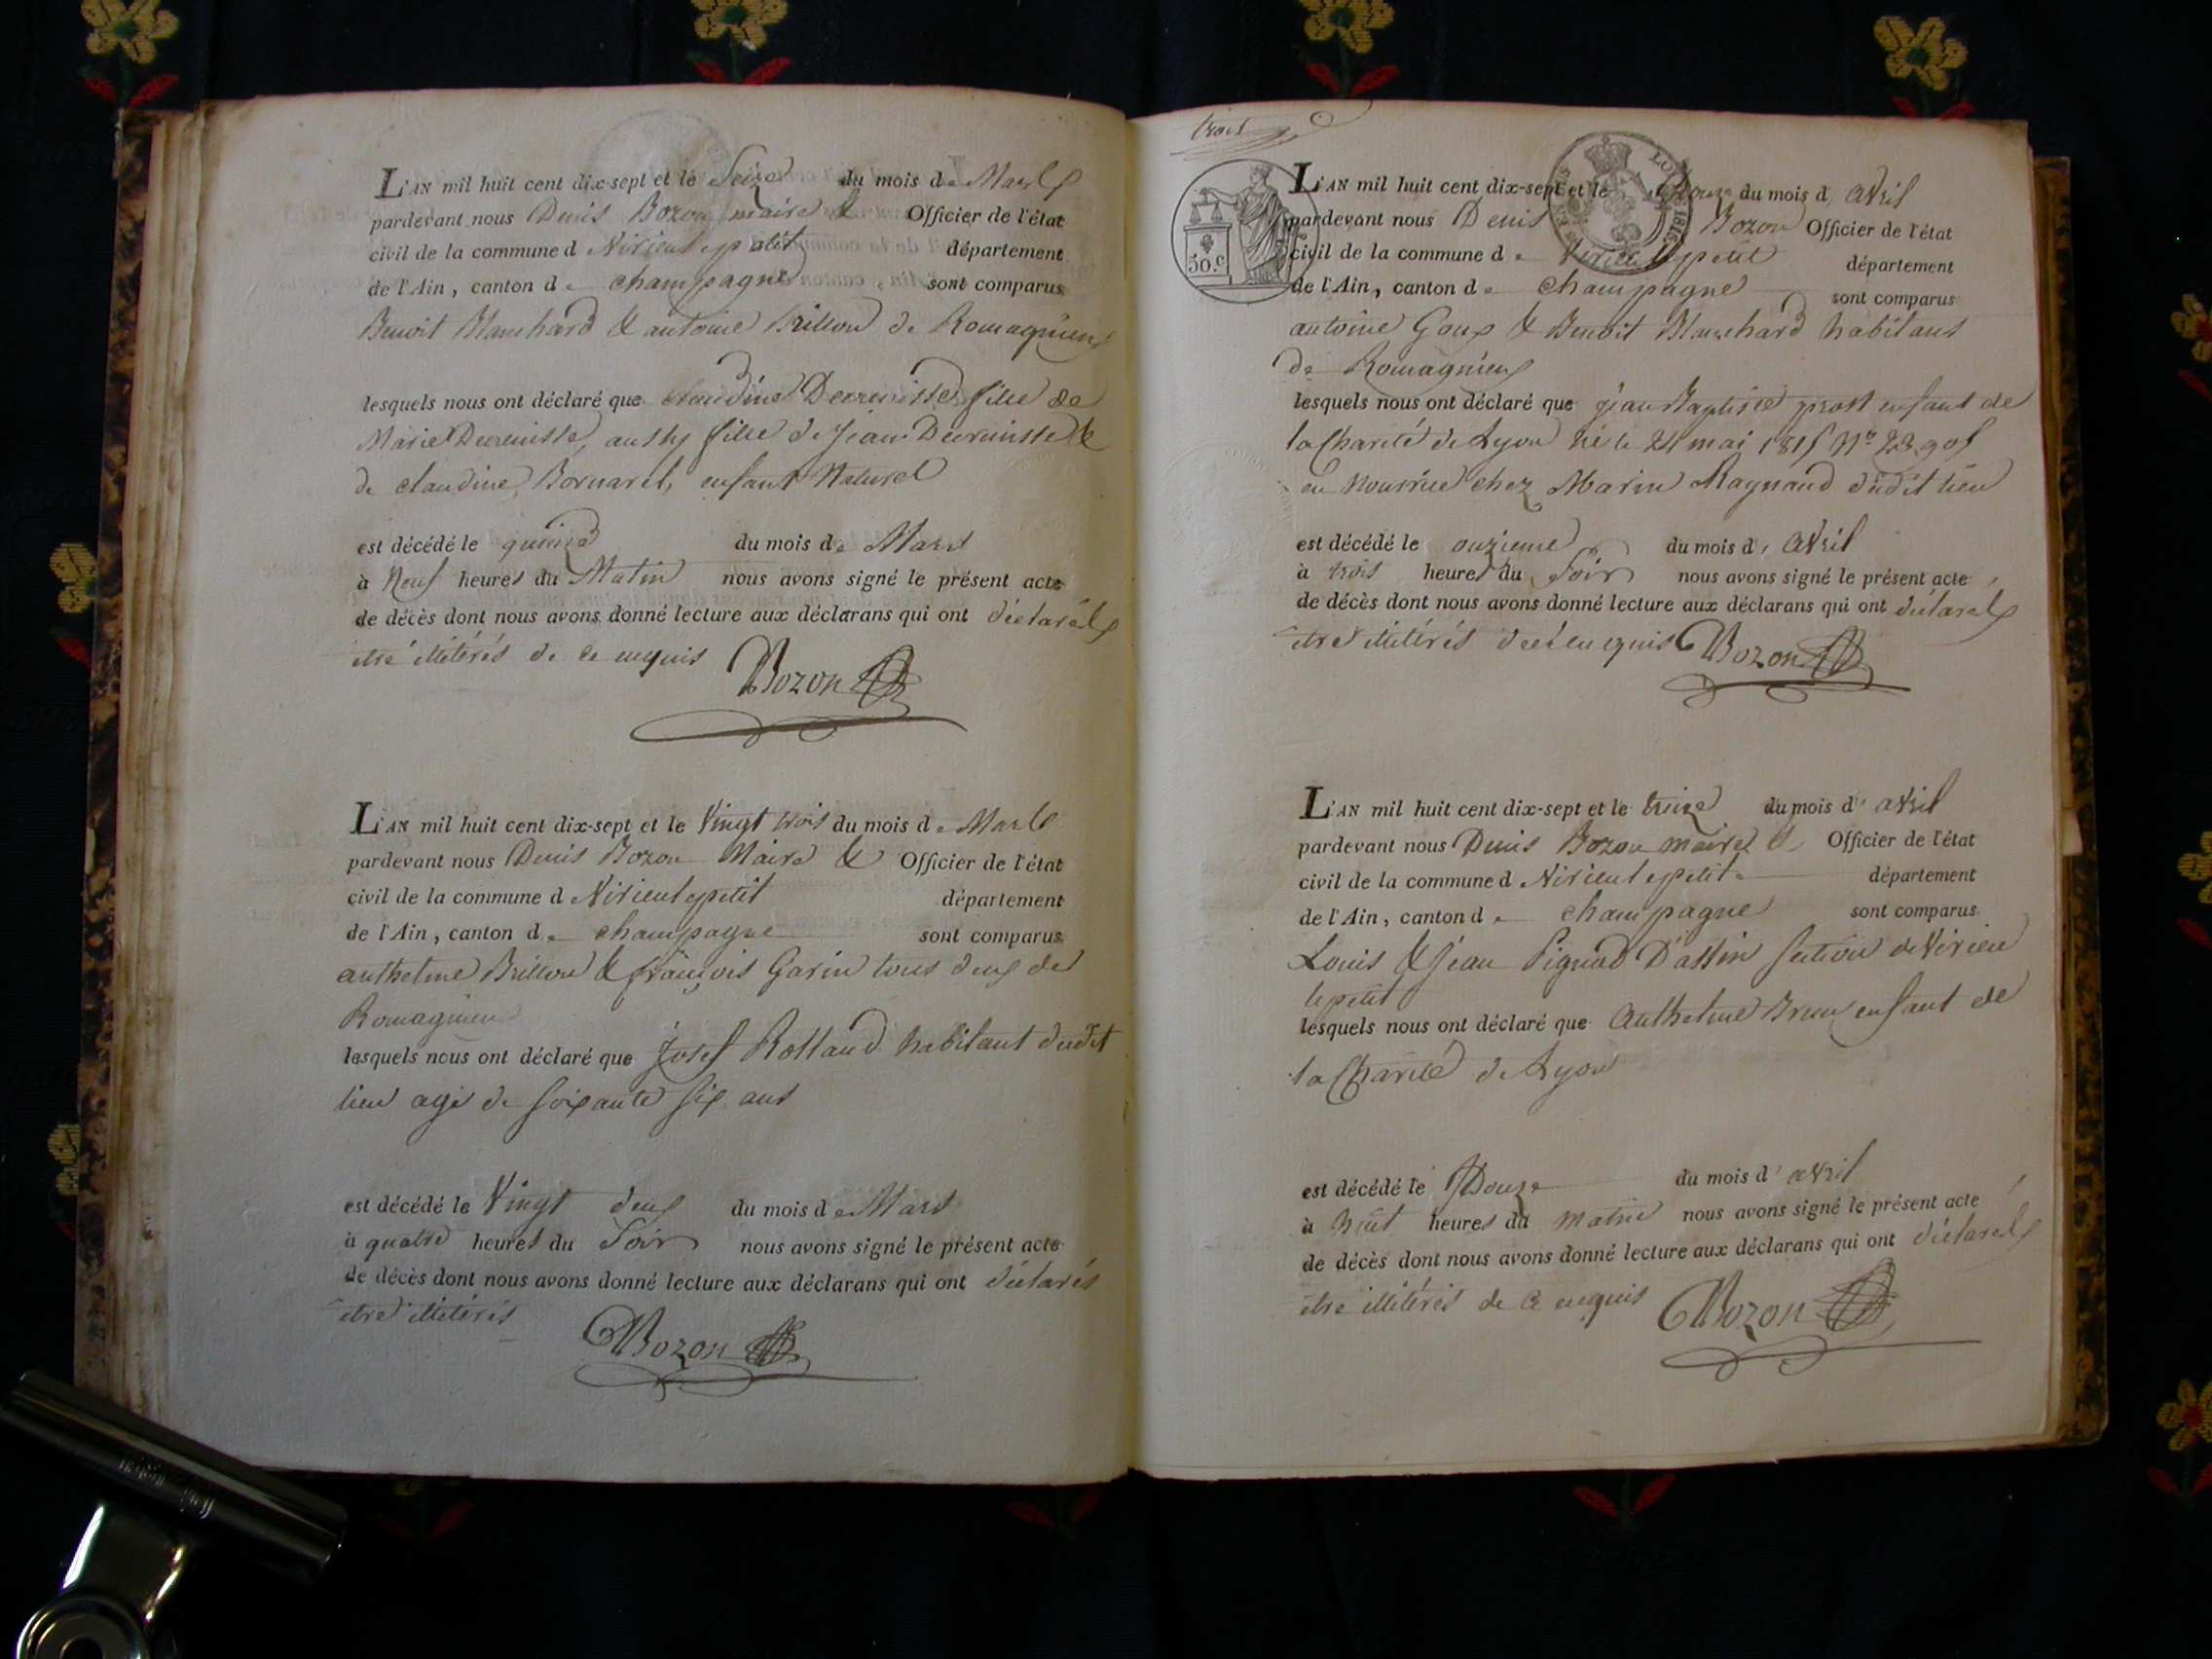 L'AN mil huit cent dix-sept et le Seize du mois de Mars
pardevant nous Denis Bozon maire & Officier de l'état
civil de la commune de Virieulepetit département
de l'Ain, canton de champagne sont comparus
Benoit Blanchard & antoine Brillon de Romagnieux
lesquels nous ont déclaré que claudine fille de
Marie fille de Jean &
de claudine Bornarel, enfant Naturel
est décédé le quinze du mois de Mars
à Neuf heures du Matin nous avons signé le présent acte
de décès dont nous avons donné lecture aux déclarans qui ont déclarés
etre illitérés de ce enquis Bozon
L'AN mil huit cent dix-sept et le Vingt trois du mois de Mars
pardevant nous Denis Bozon Maire & Officier de l'état
civil de la commune de Virieulepetit département
de l'Ain, canton de champagne sont comparus
anthelme Brillon & françois Garin tous deux de
Romagnieu
lesquels nous ont déclaré que Josef Rolland habitant dudit
lieu agé de soixante six ans
est décédé le Vingt deux du mois de Mars
à quatre heures du Soir nous avons signé le présent acte
de décès dont nous avons donné lecture aux déclarans qui ont déclarés
etre illitérés
Bozon
trois
50.c
L'AN mil huit cent dix-sept et le Douze du mois d'avril
pardevant nous Denis Bozon Officier de l'état
civil de la commune de Virieulepetit département
de l'Ain, canton de champagne sont comparus
antoine Goux & Benoit Blanchard habitans
de Romagnieux
lesquels nous ont déclaré que jean Baptiste prost enfant de
la Charité de Lyon né le 24 mai 1815 N°
en Nourrice chez Marin Raynaud dudit lieu
est décédé le onzieme du mois d'avril
à trois heures du Soir nous avons signé le présent acte
de décès dont nous avons donné lecture aux déclarans qui ont déclarés
etre illitérés de ce enquis Bozon
L'AN mil huit cent dix-sept et le treize du mois d'avril
pardevant nous Denis Bozon maire & Officier de l'état
civil de la commune de Virieulepetit département
de l'Ain, canton de champagne sont comparus
Louis & Jean Pignod D'assin section de Virieu
lepetit
lesquels nous ont déclaré que Anthelme Brun enfant de
la Charité de Lyon
est décédé le Douze du mois d'avril
à huit heures du matin nous avons signé le présent acte
de décès dont nous avons donné lecture aux déclarans qui ont déclarés
etre illitérés de ce enquis Bozon